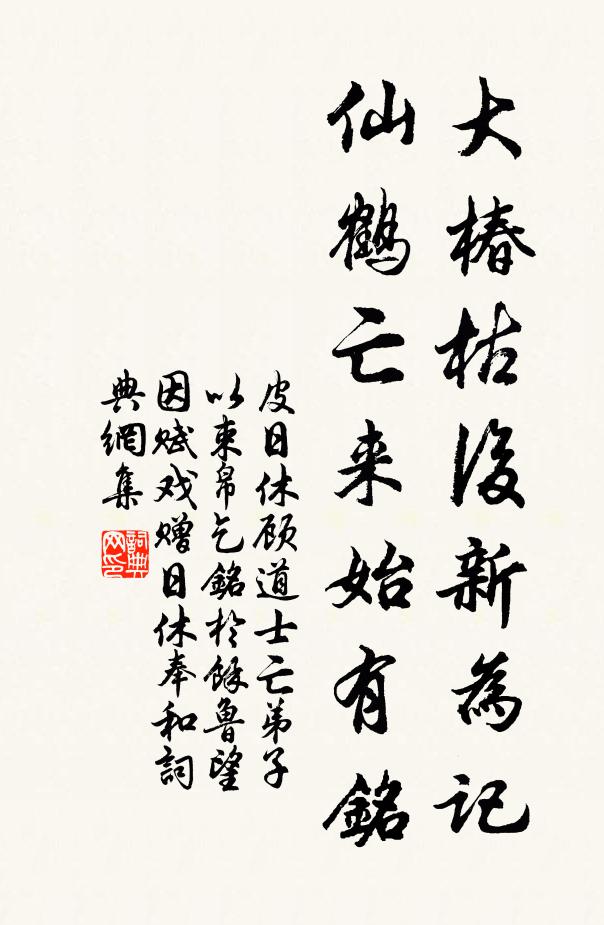 大椿枯後新為记
仙鹤亡来始有銘
皮日休顾道士亡弟子
以束帛乞銘於餘魯望
因赋戏赠日休奉和詞
典網集
詞典网印